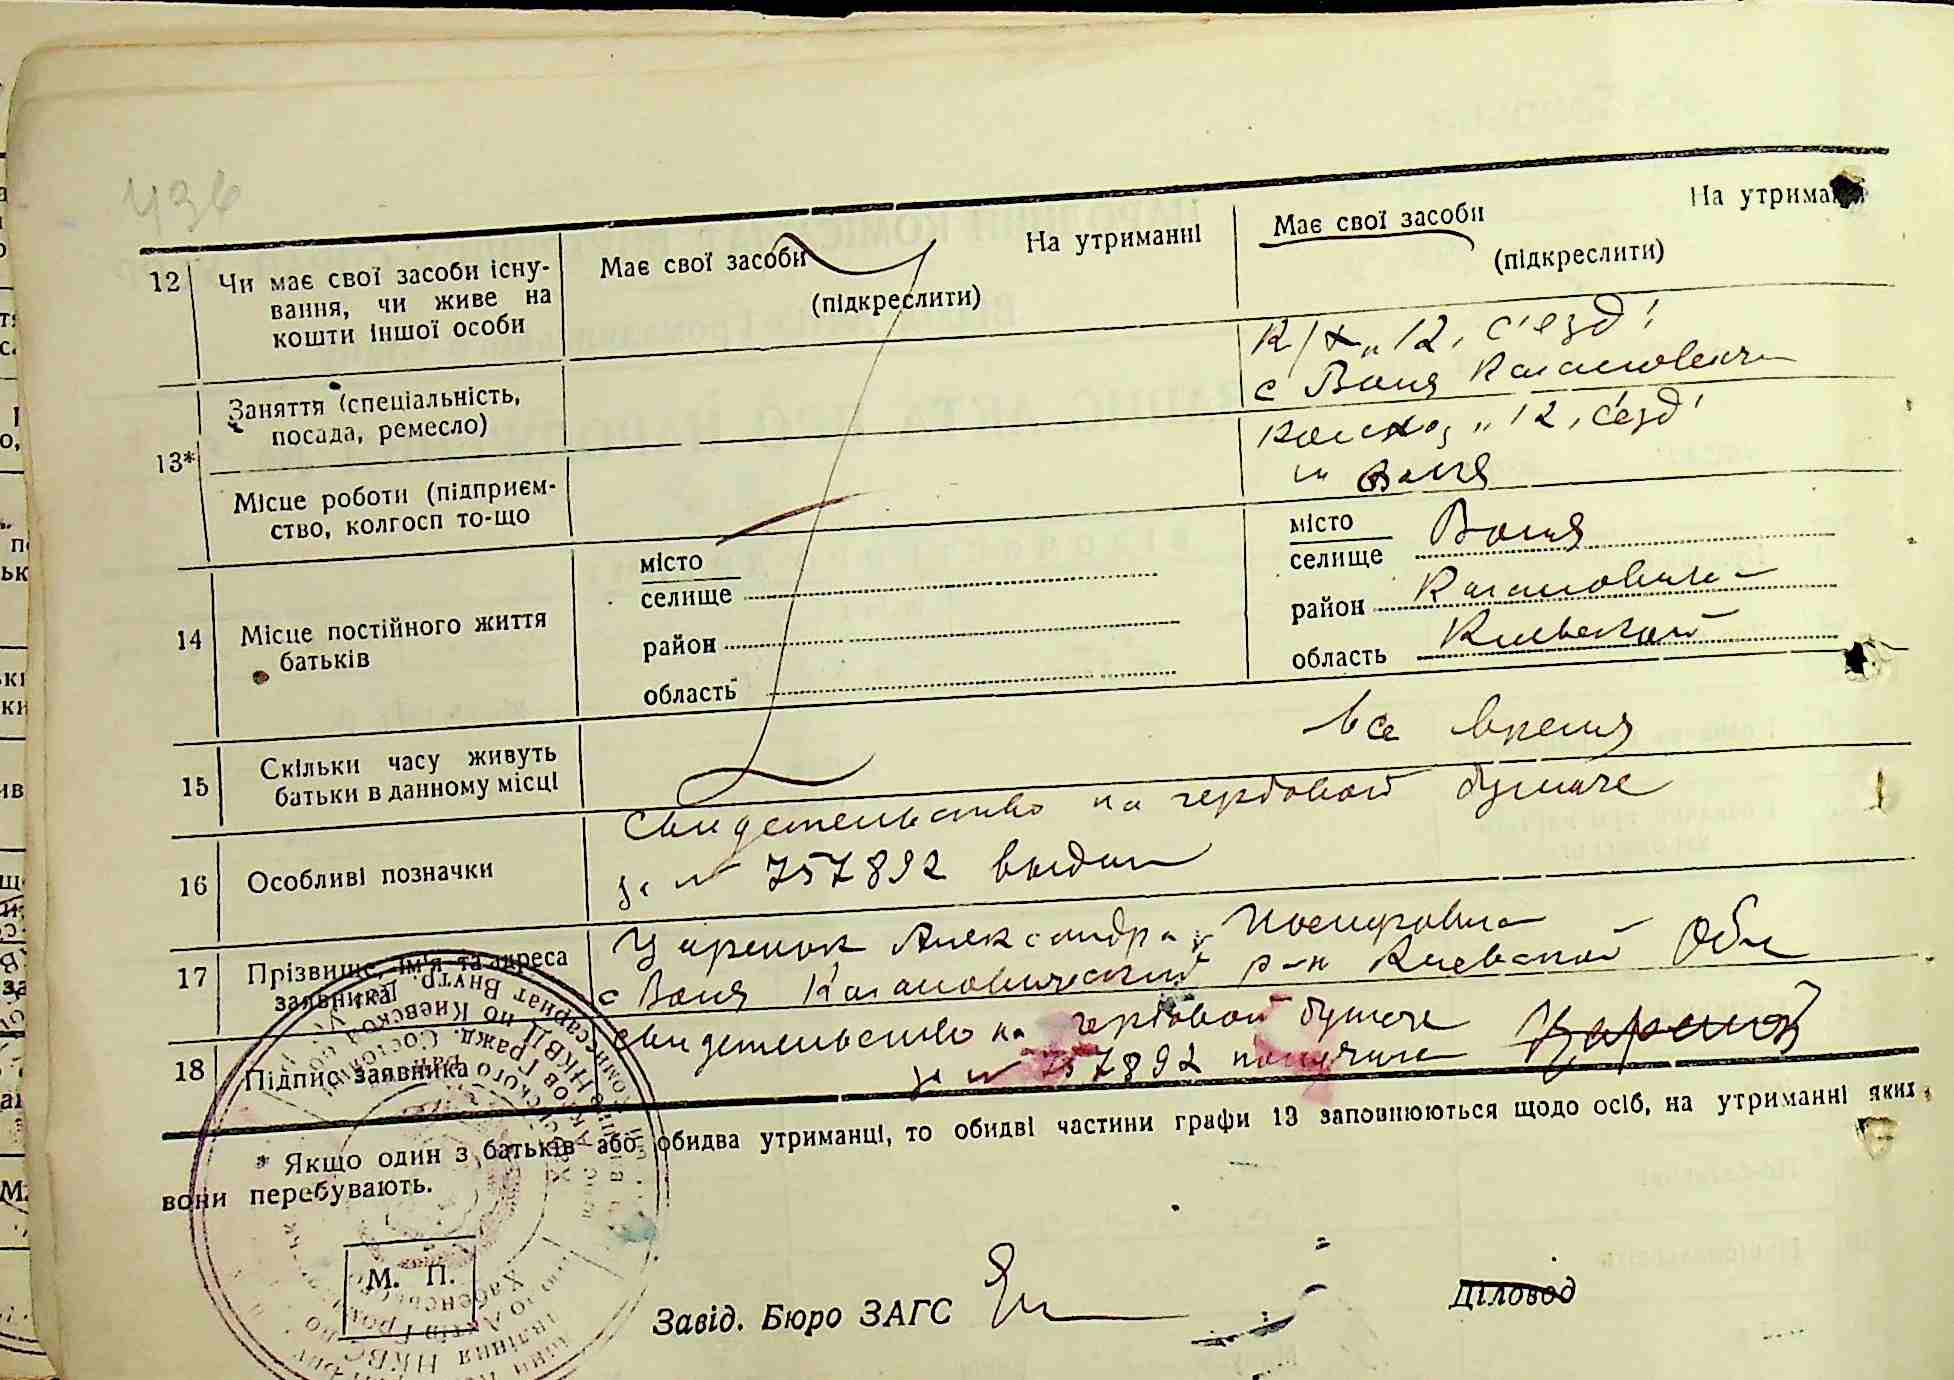 436
12 Чи має свої засоби існу-
вання, чи живе на
кошти іншої особи
Має свої засоби На утриманні
(підкреслити)
Має свої засоби На утриман
(підкреслити)
13*
Заняття (спеціальність,
посада, ремесло)
К/х „12, с'езд'
с Воля Каганович
Місце роботи (підприєм-
ство, колгосп то-що
Колхоз „12, с'езд'
Воля
14 Місце постійного життя
батьків
місто
селище
район
область
місто
селище Воля
район Каганович
область Киевской
15 Скільки часу живуть
батьки в данному місці
все время
16 Особливі позначки
свидетельство на гербовой бумаге
за № 757892 выдан
17 Прізвище, ім'я та адреса
заявника
Царенок Александра
с Воля Кагановический р-н Киевской Обл
18 Підпис заявника
свидетельство на гербовой бумаге
за № 757892 получила Царенок
* Якщо один з батьків або обидва утриманці, то обидві частини графи 13 заповнюються щодо осіб, на утриманні яких
вони перебувають.
М. П.
Завід. Бюро ЗАГС
Діловод